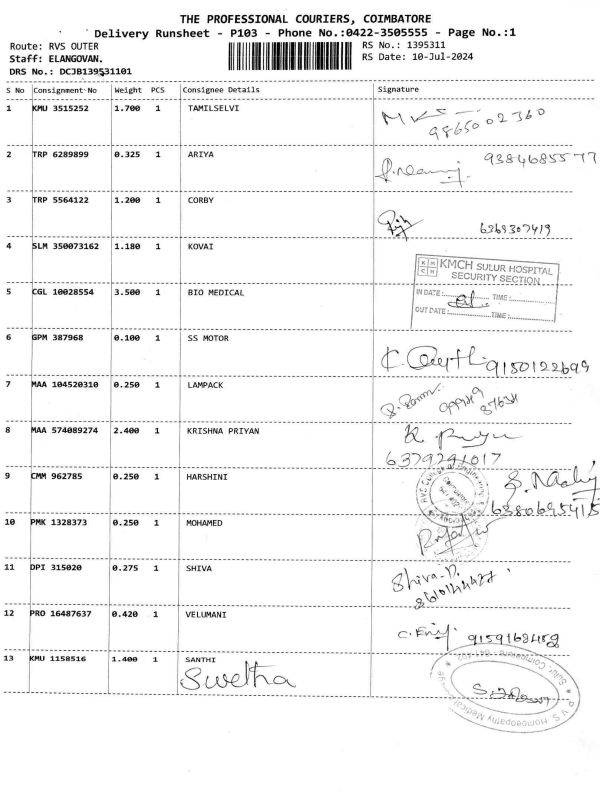 THE PROFESSIONAL COURIERS, COIMBATORE
Delivery Runsheet - P103 - Phone No.:0422-3505555 - Page No.:1
Route: RVS OUTER
RS No.: 1395311
Staff: ELANGOVAN.
RS Date: 10-Jul-2024
DRS No.: DCJB139531101
S No Consignment No Weight PCS Consignee Details Signature
1 KMU 3515252 1.700 1 TAMILSELVI
9865002360
2 TRP 6289899 0.325 1 ARIYA
9384685577
3 TRP 5564122 1.200 1 CORBY
6268307419
4 SLM 350073162 1.180 1 KOVAI
KMCH SULUR HOSPITAL
SECURITY SECTION
5 CGL 10028554 3.500 1 BIO MEDICAL
IN DATE: TIME:
OUT DATE: TIME:
6 GPM 387968 0.100 1 SS MOTOR
9150122699
7 MAA 104520310 0.250 1 LAMPACK
8 MAA 574089274 2.400 1 KRISHNA PRIYAN
6379291017
9 CMM 962785 0.250 1 HARSHINI
6380695415
10 PMK 1328373 0.250 1 MOHAMED
11 DPI 315020 0.275 1 SHIVA
Shiva.P.
12 PRO 16487637 0.420 1 VELUMANI
9159168458
13 KMU 1158516 1.400 1 SANTHI
Swetha